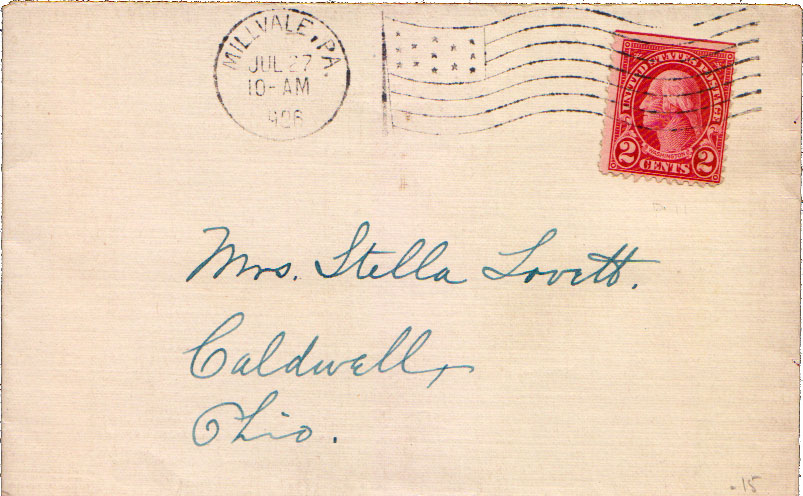 MILLVALE, PA.
JUL 27
10-AM
1926
UNITED STATES POSTAGE
WASHINGTON
2 CENTS 2
Mrs. Stella Lovett.
Caldwell,
Ohio.
.15